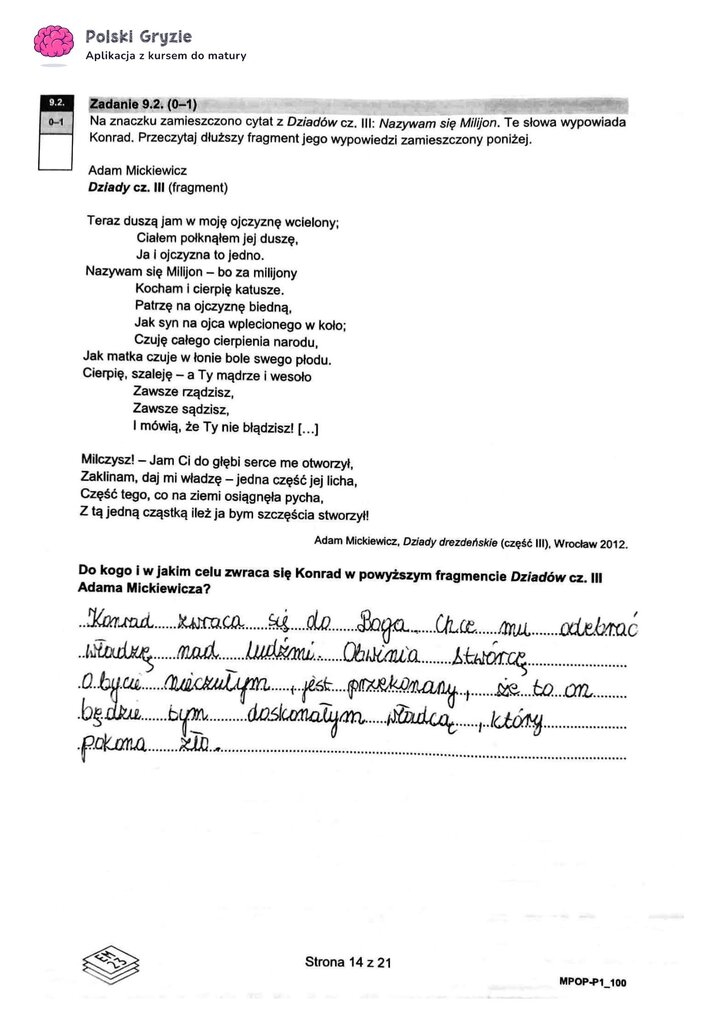 Polski Gryzie
Aplikacja z kursem do matury
9.2.
0–1
Zadanie 9.2. (0–1)
Na znaczku zamieszczono cytat z Dziadów cz. III: Nazywam się Milijon. Te słowa wypowiada
Konrad. Przeczytaj dłuższy fragment jego wypowiedzi zamieszczony poniżej.
Adam Mickiewicz
Dziady cz. III (fragment)
Teraz duszą jam w moję ojczyznę wcielony;
Ciałem połknąłem jej duszę,
Ja i ojczyzna to jedno.
Nazywam się Milijon – bo za milijony
Kocham i cierpię katusze.
Patrzę na ojczyznę biedną,
Jak syn na ojca wplecionego w koło;
Czuję całego cierpienia narodu,
Jak matka czuje w łonie bole swego płodu.
Cierpię, szaleję – a Ty mądrze i wesoło
Zawsze rządzisz,
Zawsze sądzisz,
I mówią, że Ty nie błądzisz! [...]
Milczysz! – Jam Ci do głębi serce me otworzył,
Zaklinam, daj mi władzę – jedna część jej licha,
Część tego, co na ziemi osiągnęła pycha,
Z tą jedną cząstką ileż ja bym szczęścia stworzył!
Adam Mickiewicz, Dziady drezdeńskie (część III), Wrocław 2012.
Do kogo i w jakim celu zwraca się Konrad w powyższym fragmencie Dziadów cz. III
Adama Mickiewicza?
Konrad zwraca się do Boga. Chce mu odebrać
władzę nad ludźmi. Obwinia stwórcę
o bycie nieczułym, jest przekonany, że to on
będzie tym doskonałym władcą, który
pokona zło.
EM
23
Strona 14 z 21
MPOP-P1_100